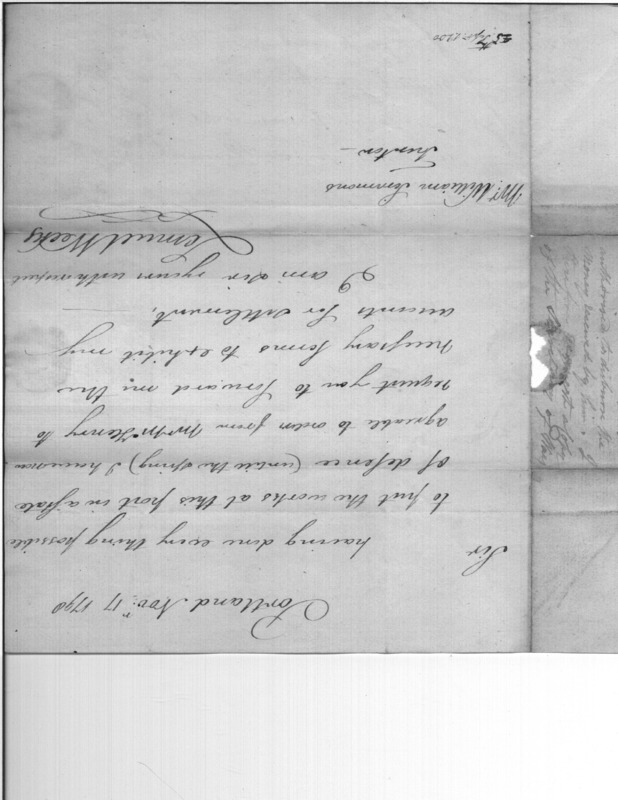 Portland Nov.r 17 1798
Sir
having done every thing possible
to put the works at this port in a state
of defence (untill the spring) I have now
agreable to order from Mr McHenry to
request you to forward me the
necessary forms to exhibit my
accounts for settlement,
I am Sir yours with respect
Lemuel Weeks
Mr. William Simmons
Trenton
of the
money received by him